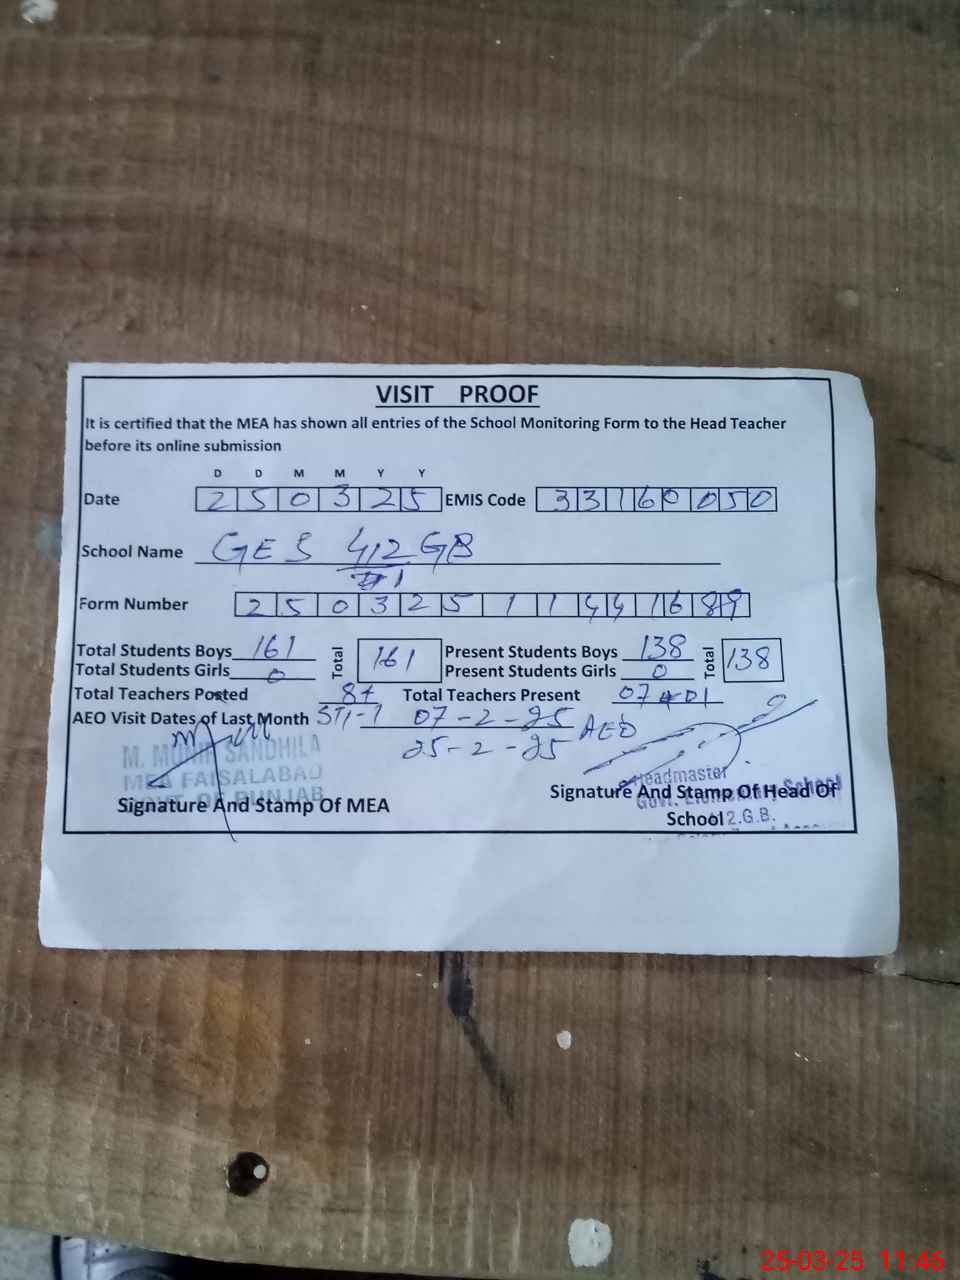 VISIT PROOF
It is certified that the MEA has shown all entries of the School Monitoring Form to the Head Teacher
before its online submission
D D M M Y Y
Date 2 5 0 3 2 5 EMIS Code 3 3 1 6 0 0 5 0
School Name GES 412 GB
Form Number 2 5 0 3 2 5 1 1 4 4 1 6
Total Students Boys 161 Total 161 Present Students Boys 138 Total 138
Total Students Girls 0 Present Students Girls 0
Total Teachers Posted Total Teachers Present 07
AEO Visit Dates of Last Month 07-2-25 AEO
25-2-25
M. MUNIR SANDHILA
MEA FAISALABAD
OF PUNJAB
Signature And Stamp Of MEA
Headmaster
Govt. Elementary School
2.G.B.
Signature And Stamp Of Head Of
School
25-03-25 11:46